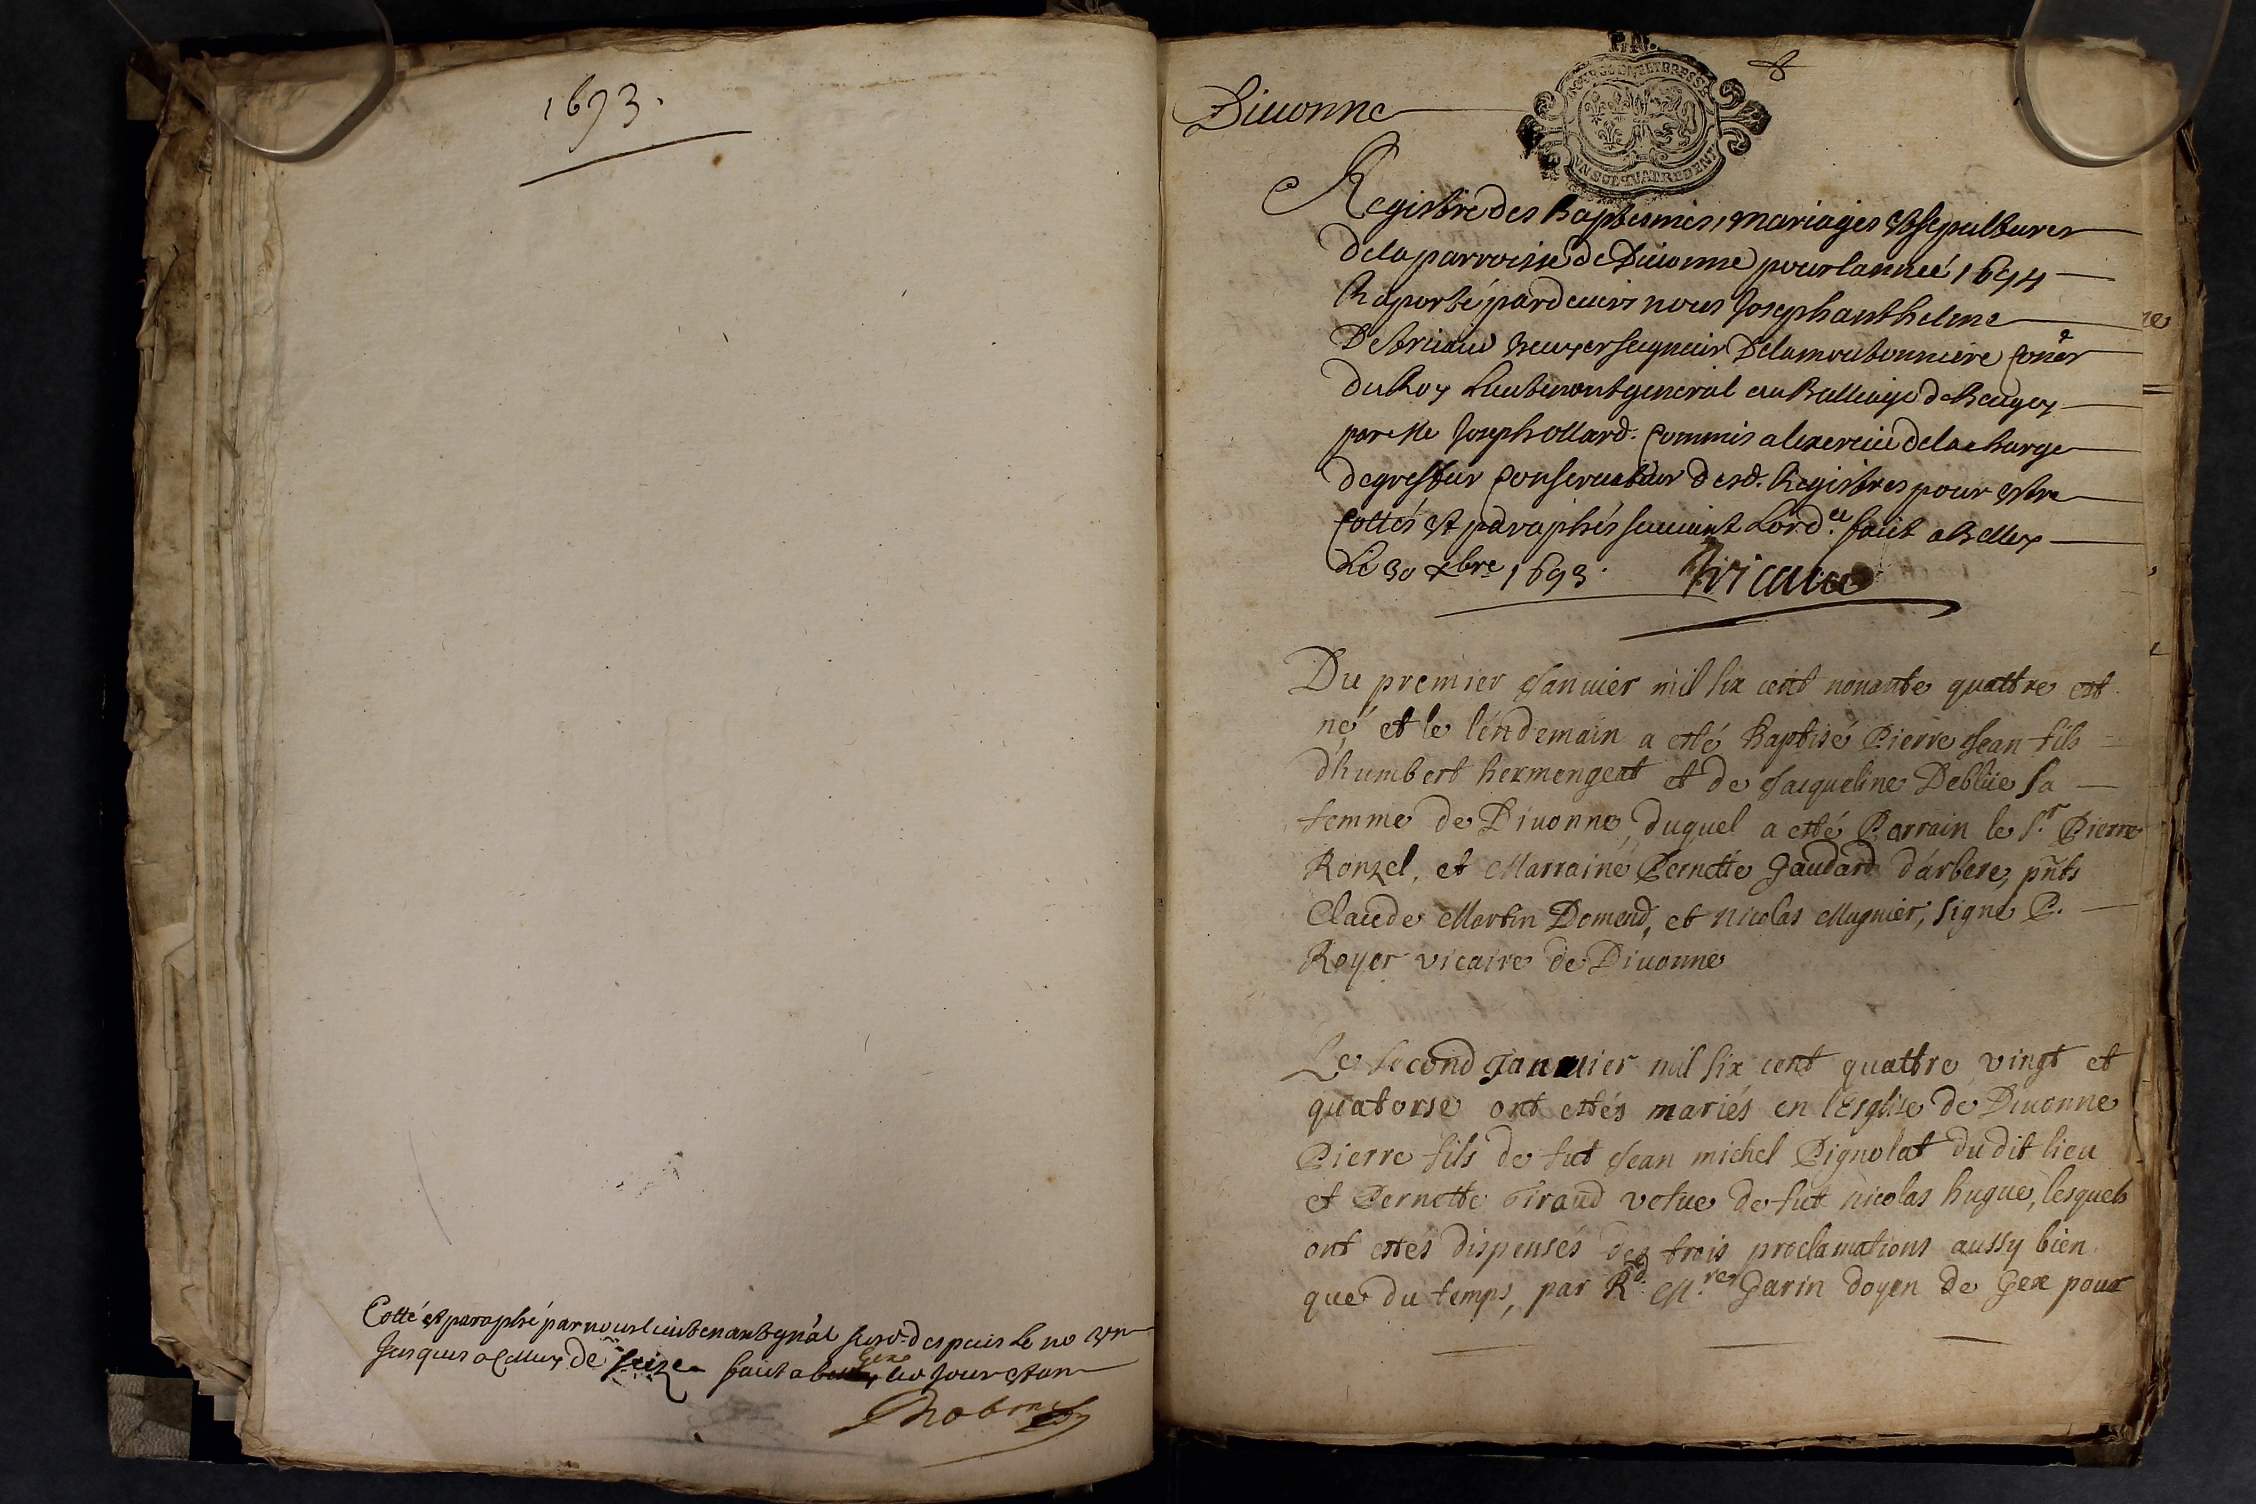 1693.
Cotté et paraphé par nous lieutenant gnâl susd. despuis le no un
Jusques a Celluy de seize faict a Gex les Jour et an
Divonne
P.N.
BOURGOGNE ET BRESSE
UN SOL QUATRE DEN
Registre des Baptesmes, mariages et sepultures
de la parroisse de Divonne pour lanneé 1694
Raporté pardevers nous Joseph anthelme
De tricaud Escuyer seigneur De la moutonniere Coner
du Roy Lieutenant general au Balliage de Beugey
par Me Joseph ollard. Commis a lexercice de la charge
de greffier Conservateur desd. Registres pour estre
Cottés et paraphés suivant Lord.ce faict a Belley
Le 30 xbre 1693. Tricaud
Du premier Januier mil six cent nonante quattre est
né et le lendemain a esté Baptisé Pierre Jean fils
d'humbert hermengeat et de Jacqueline Deblüe sa
femme de Diuonne, duquel a esté Parrain le S.r Pierre
Ronzel, et Marraine Pernette Gaudard d'arbere, pnts
Claude Martin Domend, et nicolas Magnier, signé P.
Royer vicaire de Diuonne
Le second Januier mil six cent quattre vingt et
quatorse ont estés mariés en l'Esglise de Diuonne
Pierre fils de fut Jean michel Pignolat du dit lieu
et Pernette Giraud vefue de fut nicolas hugue, lesquels
ont estés dispensés des trois proclamations aussy bien
que du temps, par R.d M.re Garin doyen de Gex pour